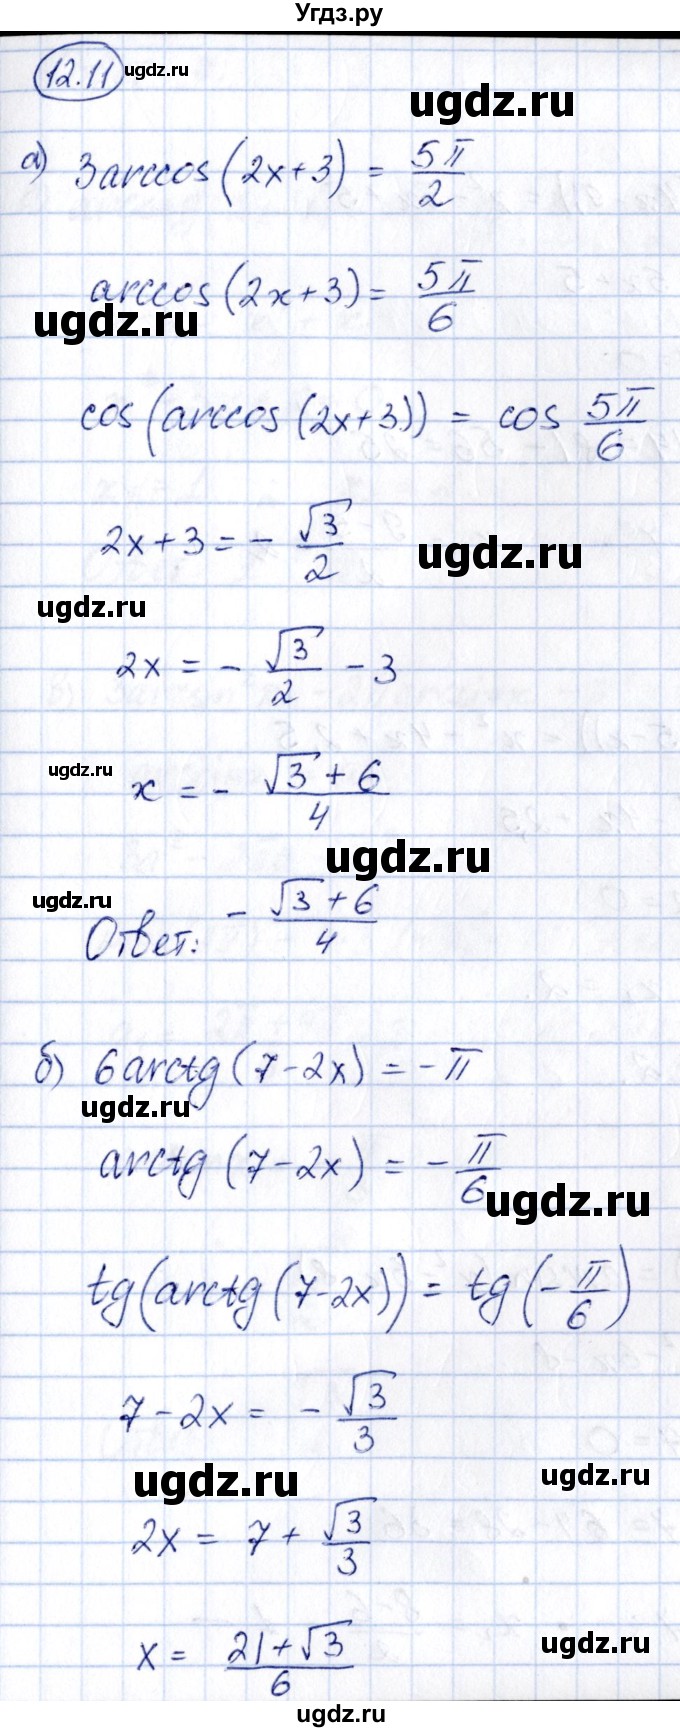 Угдз.ру
12.11 ugdz.ru
ugdz.ru
а) 3arccos(2x+3) = 5π/2
arccos(2x+3) = 5π/6
ugdz.ru
cos(arccos(2x+3)) = cos 5π/6
2x+3 = - √3/2
ugdz.ru
ugdz.ru
2x = - √3/2 - 3
ugdz.ru
x = - (√3+6)/4
ugdz.ru
ugdz.ru
Ответ: - (√3+6)/4
б) 6arctg(7-2x) = -π
ugdz.ru
arctg(7-2x) = -π/6
ugdz.ru
tg(arctg(7-2x)) = tg(-π/6)
7-2x = - √3/3
ugdz.ru
ugdz.ru
2x = 7 + √3/3
ugdz.ru
x = (21+√3)/6
ugdz.ru